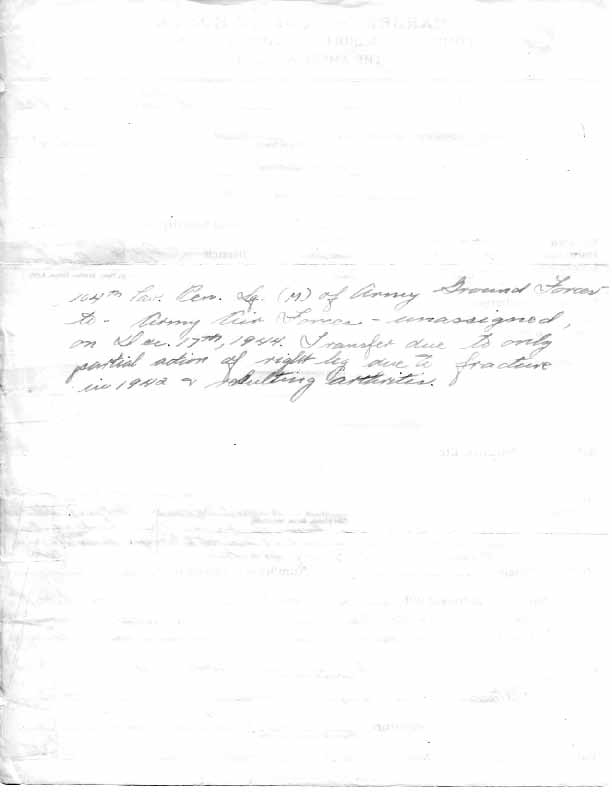 104th Cav. Rcn. Sq. (M) of Army Ground Forces
to - Army Air Forces - unassigned,
on Dec. 17th, 1944. Transfer due to only
partial action of right leg due to fracture
in 1942 & resulting arthritis.